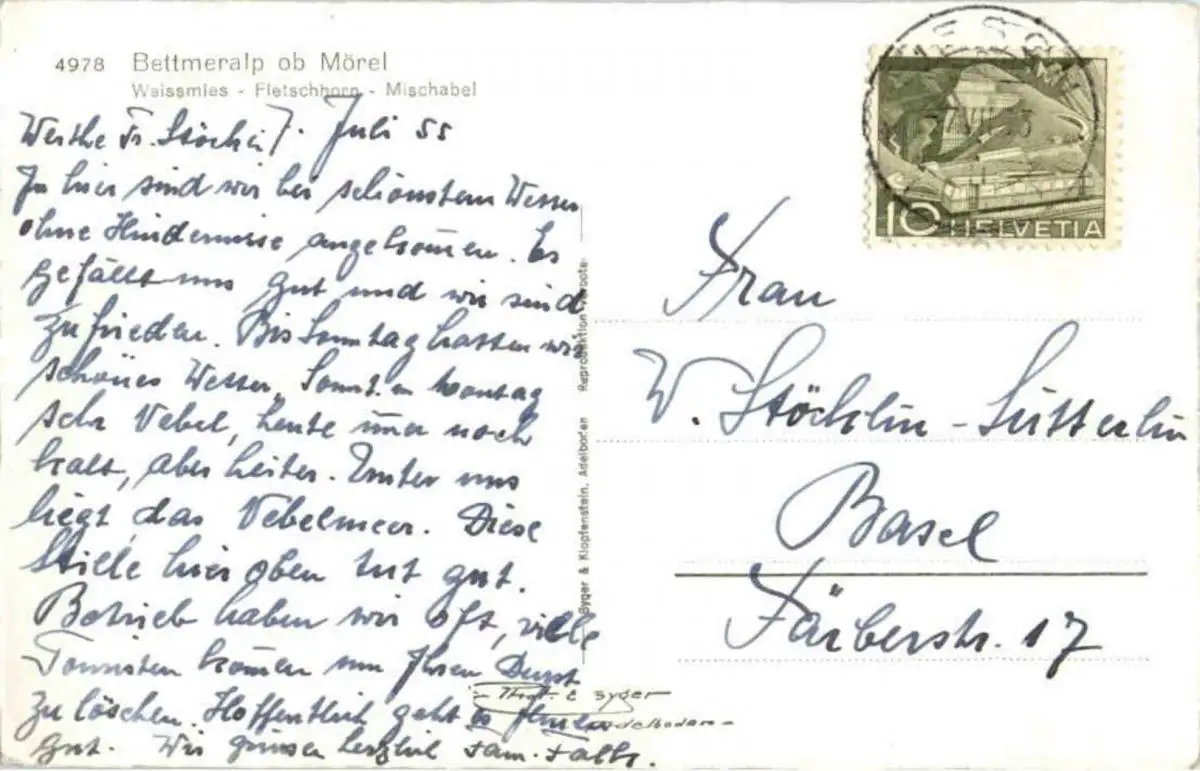 4978 Bettmeralp ob Mörel
Weissmies - Fletschhorn - Mischabel
Werthe Fr. Stöcklin 7. Juli 55
In hier sind wir bei schönstem Wetter
ohne Hindernisse angekom̄en. Es
gefällt uns gut und wir sind
zufrieden. Bis Sonntag hatten wir
schönes Wetter, Sonnt. u Montag
sehr Nebel, heute im̄er noch
kalt, aber heiter. Unter uns
liegt das Nebelmeer. Diese
Stille hier oben tut gut.
Betrieb haben wir oft, viele
Touristen kom̄en um Ihren Durst
zu löschen. Hoffentlich geht es Ihnen
gut. Wir grüssen herzlich Fam.
Gyger & Klopfenstein, Adelboden Reproduktion verboten
Phot. E Gyger
Adelboden
10 HELVETIA
Frau
W. Stöcklin-Sütterlin
Basel
Färberstr. 17